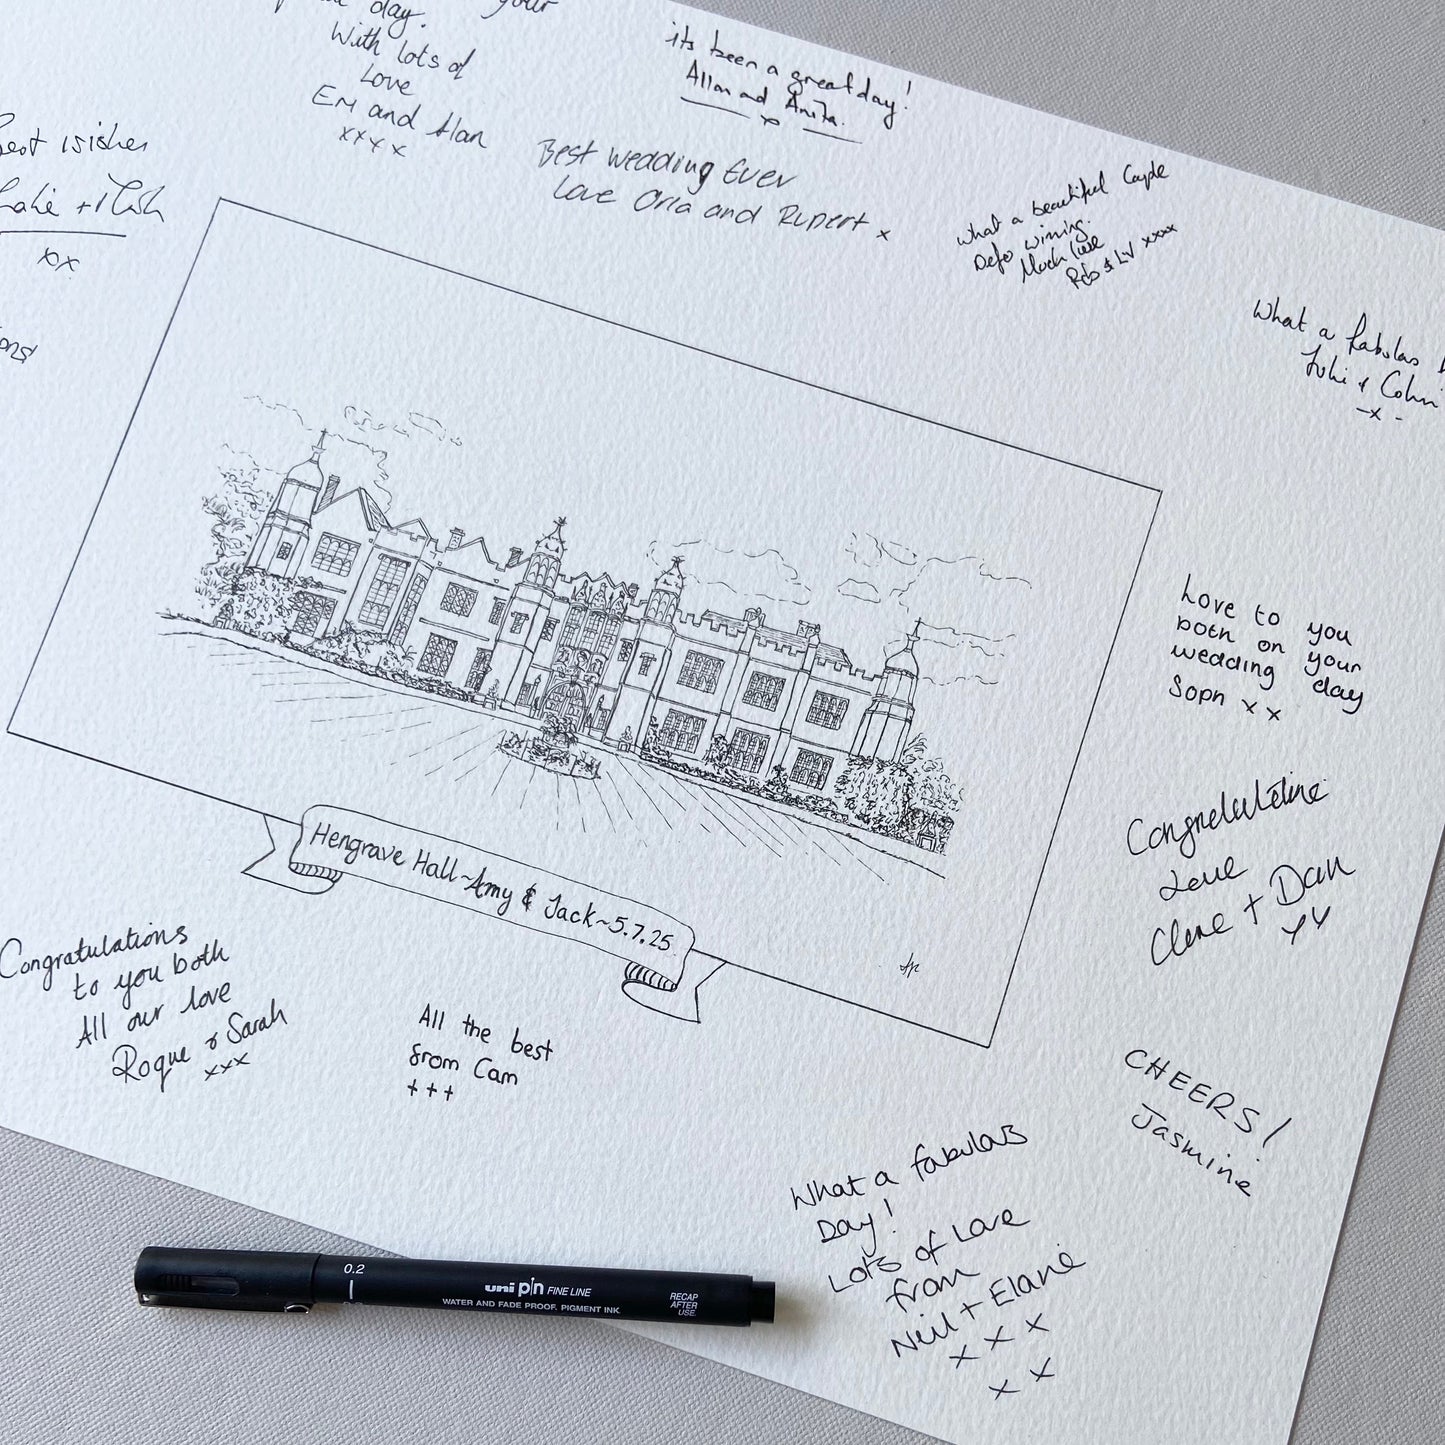 day. your
With lots of
Love
Em and Alan
xxxx
its been a great day!
Allan and Anita.
x
Best Wedding Ever
Love Orla and Rupert x
What a beautiful Couple
Defo winning.
Much love
Rob & Liv xxxx
Best wishes
xx
What a fabulas
Julie &
-x-
Love to you
both on your
wedding day
Soph x x
Love
+ Dan
xx
Hengrave Hall~Amy & Jack~5.7.25.
Congratulations
to you both
All our love
& Sarah
xxx
All the best
from Cam
+++
CHEERS!
Jasmine
What a fabulas
Day!
Lots of Love
from
Neil + Elaine
x x x
x x
0.2
uni pin FINE LINE
WATER AND FADE PROOF, PIGMENT INK.
RECAP
AFTER
USE.